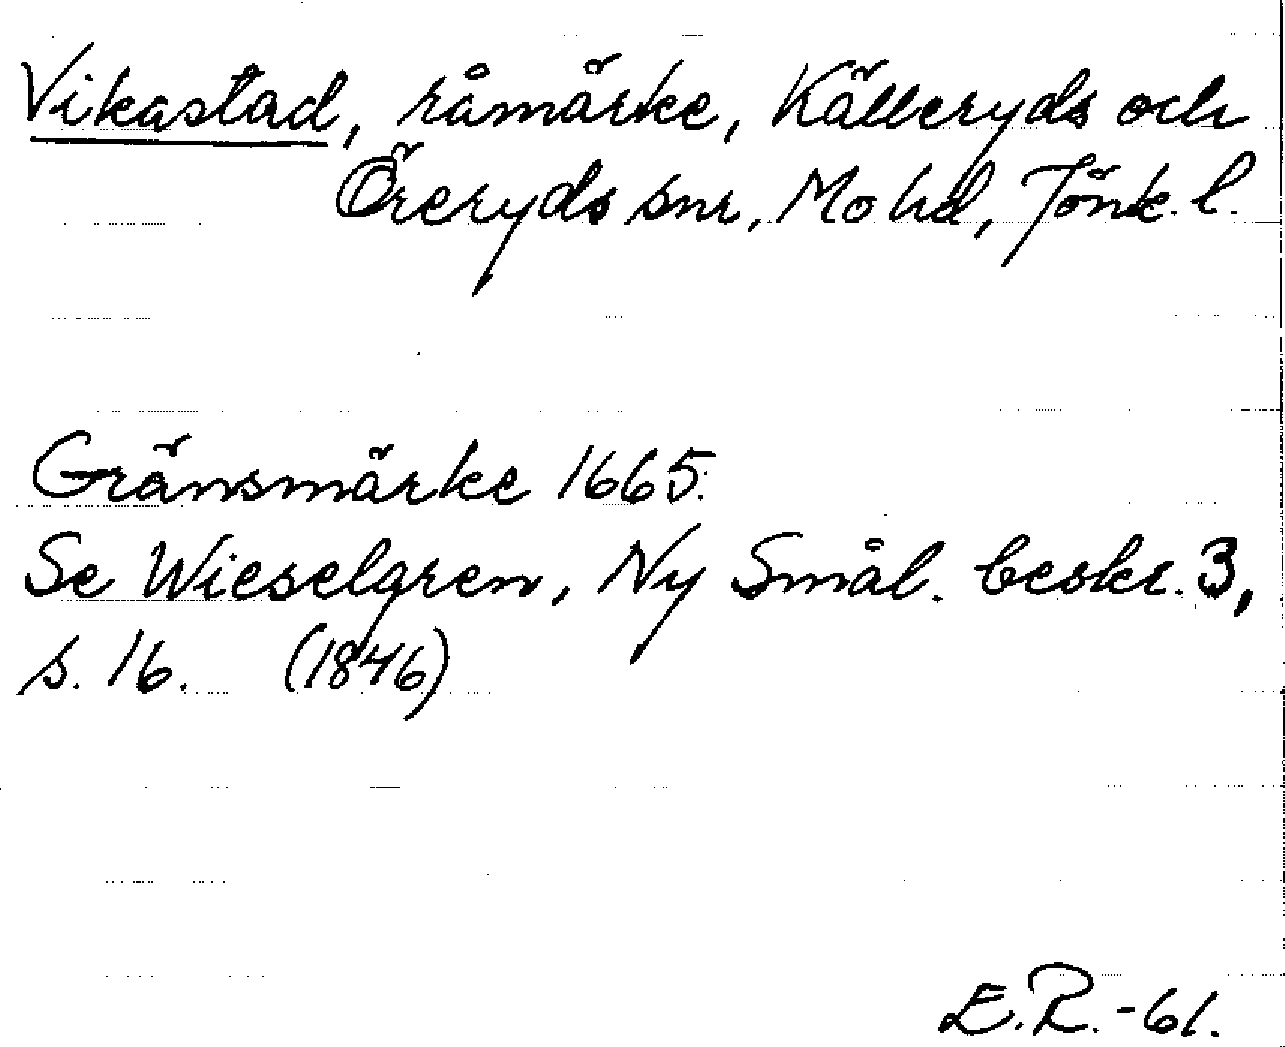 Vikastad, råmärke, Källeryds och
Öreryds snr, Mo hd, Jönk. l.
Gränsmärke 1665.
Se Wieselgren, Ny Smål. beskr. 3,
s. 16. (1846)
E.R.-61.